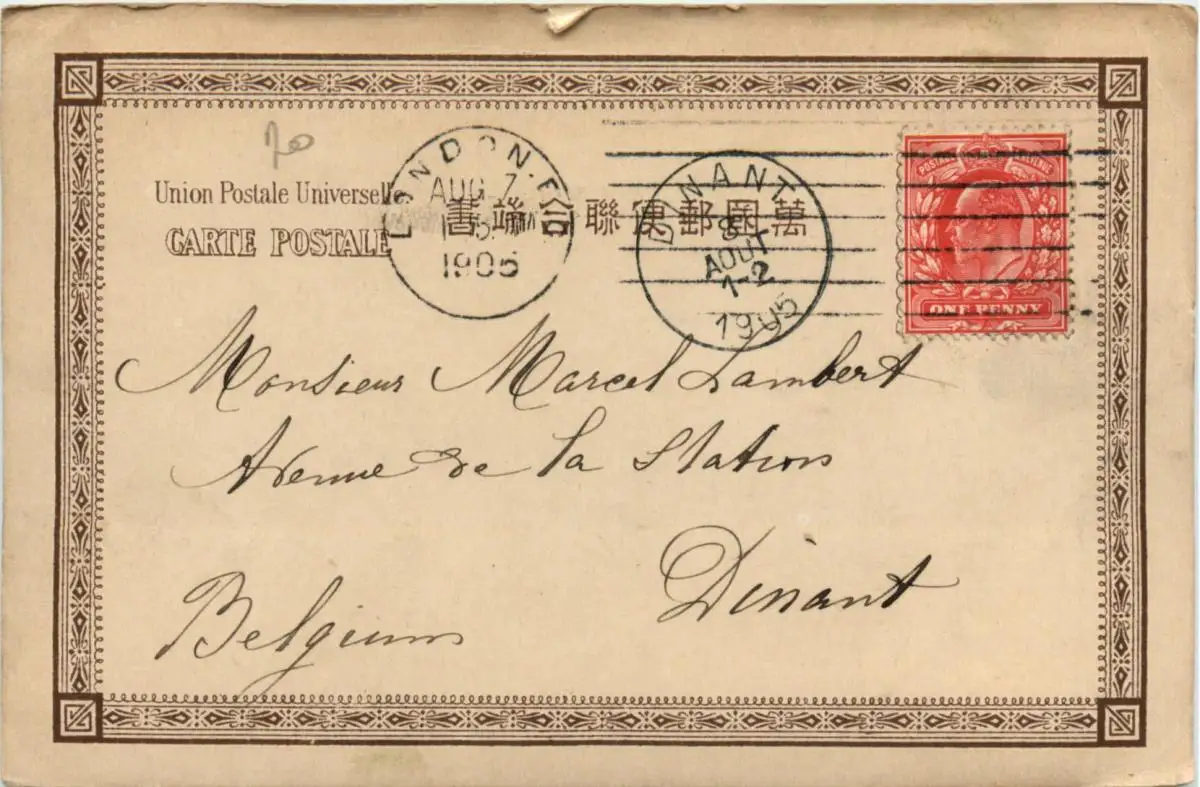 20
Union Postale Universelle
CARTE POSTALE
萬國郵便聯合端書
LONDON.E.C
AUG 7
1905
DINANT
8
AOUT
1-2
1905
POSTAGE REVENUE
ONE PENNY
Monsieur Marcel Lambert
Avenue de la Station
Dinant
Belgium